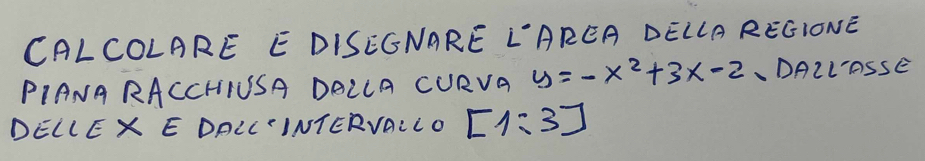 CALCOLARE E DISEGNARE L'AREA DELLA REGIONE
PIANA RACCHIUSA DALLA CURVA y=-x²+3x-2, DALL'ASSE
DELLE X E DALL'INTERVALLO [1:3]